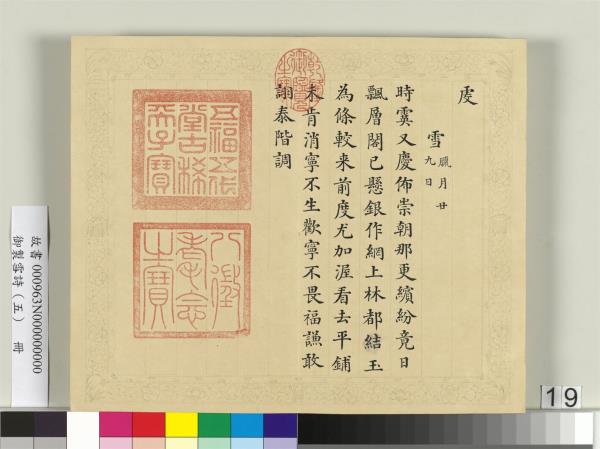 虔
雪
臘月廿
九日
時霙又慶佈崇朝那更繽紛竟日
飄層閣已懸銀作網上林都結玉
為條較来前度尤加渥看去平鋪
未肯消寧不生歡寧不畏福謙敢
詡泰階調
五福五代
堂古稀
天子寶
八徵
耄念
之寶
故書 000963N000000000
御製雪詩(五) 冊
19